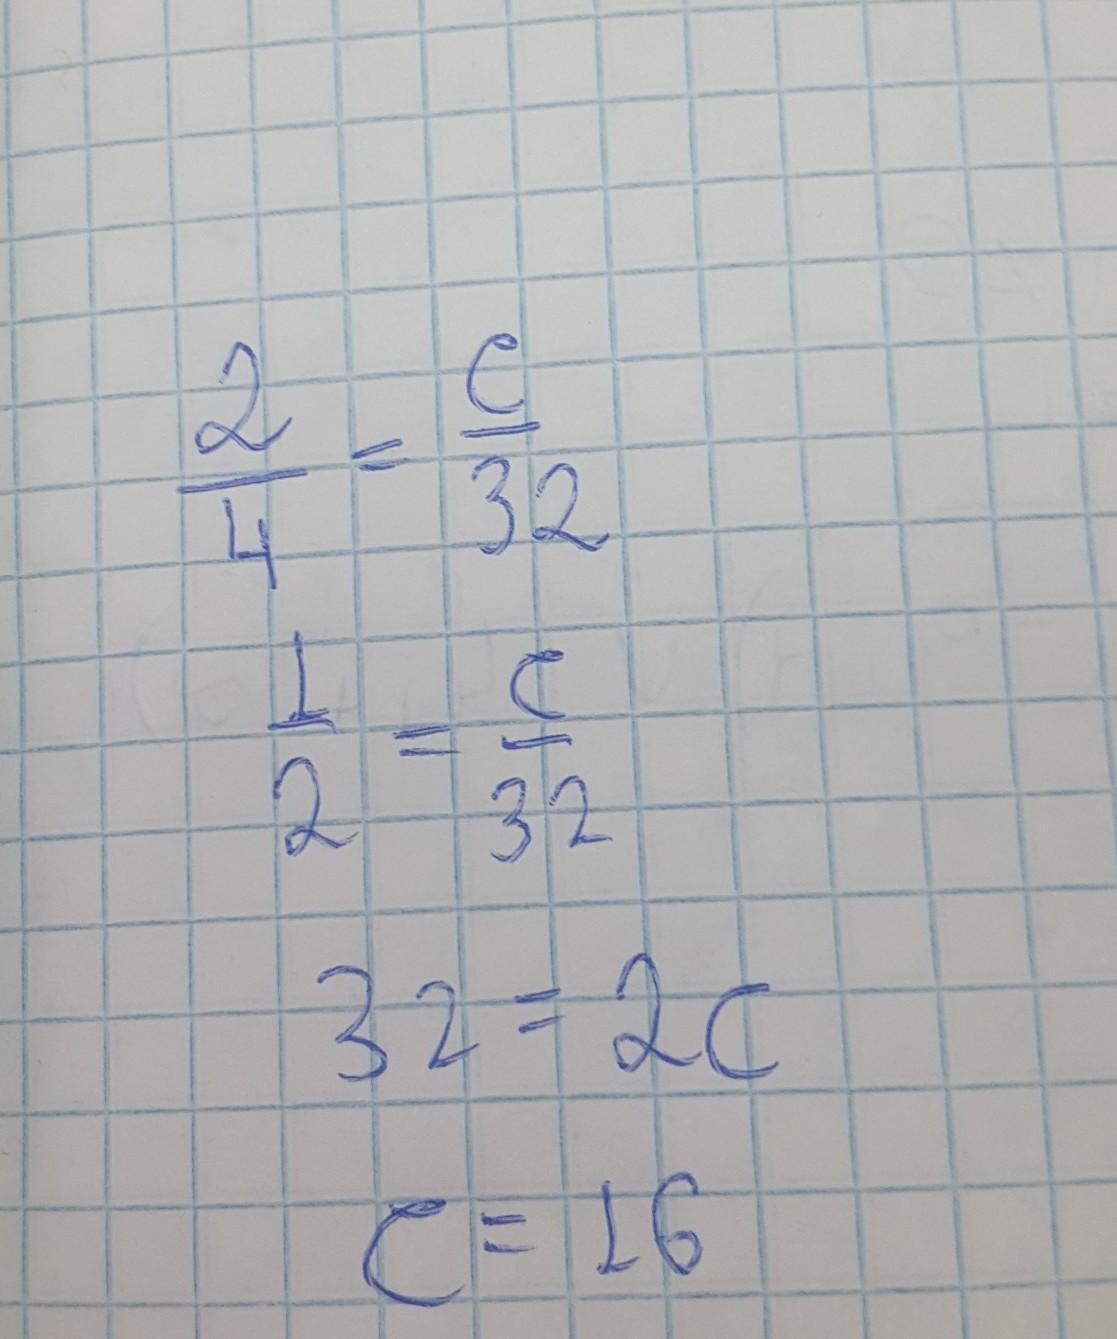 2/4 = c/32
1/2 = c/32
32 = 2c
c = 16